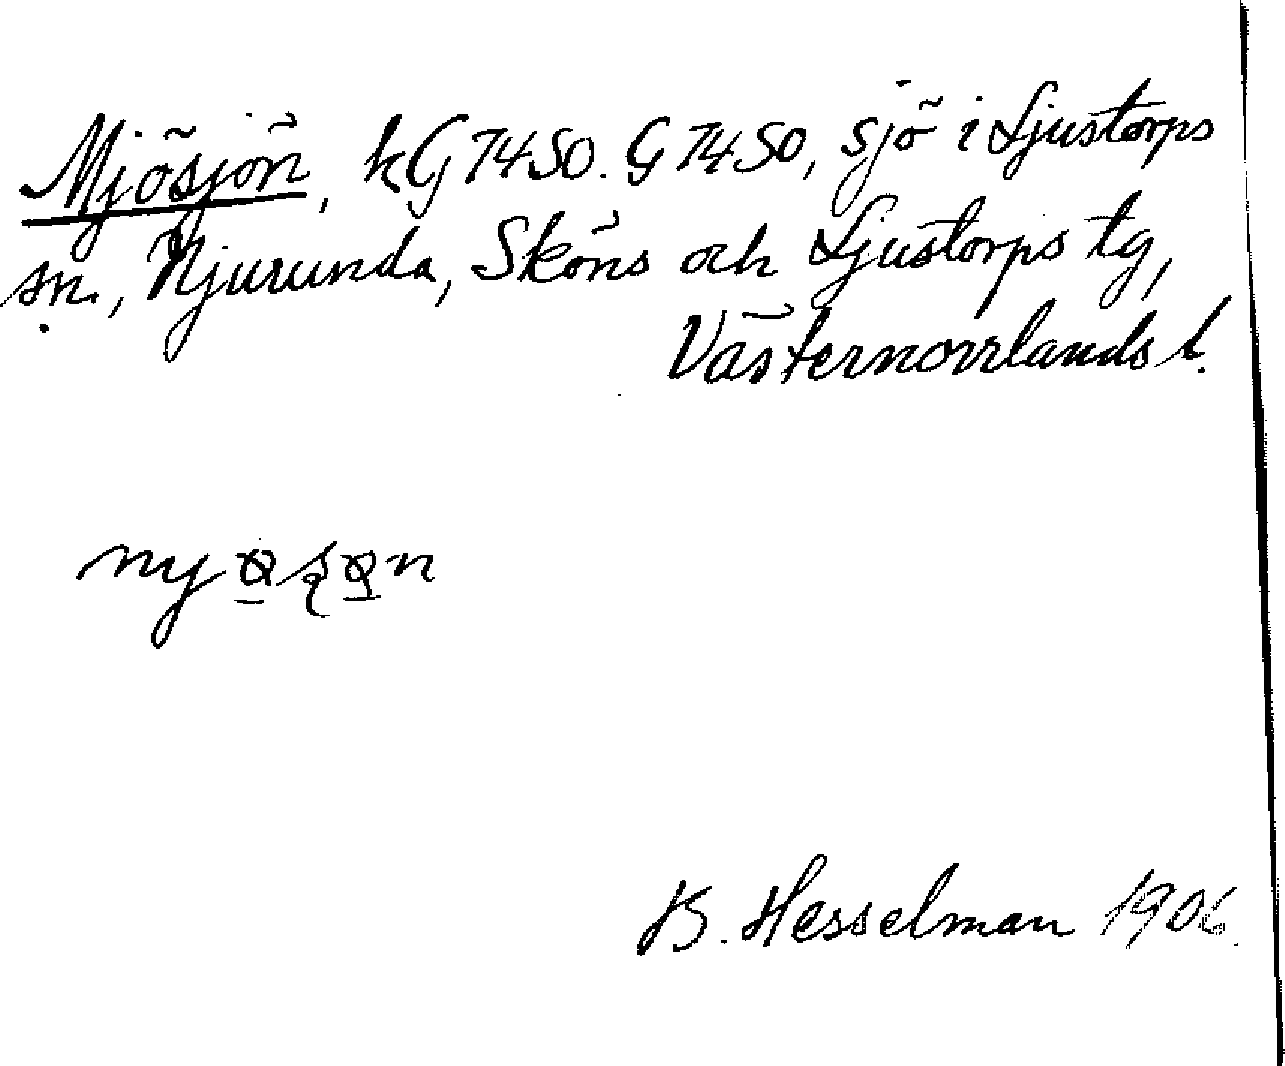 Mjösjön, kG7450. G7450, sjö i Ljustorps
sn., Njurunda, Sköns och Ljustorps tg,
Västernorrlands l.
B. Hesselman 1906.